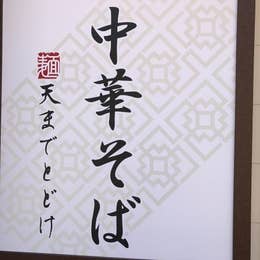 中華そば
麺
天までとどけ